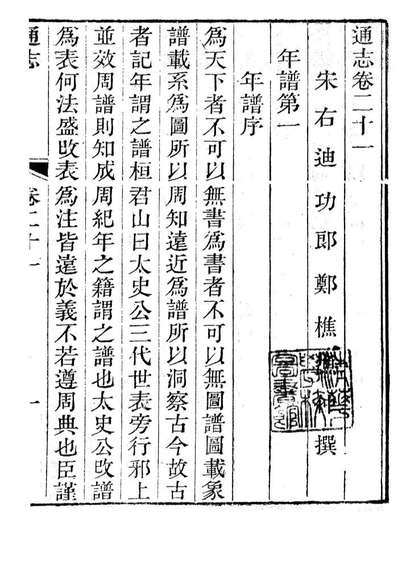 通志卷二十一
宋右迪功郎鄭樵撰
年譜第一
年譜序
為天下者不可以無書為書者不可以無圖譜圖載象
譜載系為圖所以周知遠近為譜所以洞察古今故古
者記年謂之譜桓君山曰太史公三代世表旁行邪上
並效周譜則知成周紀年之籍謂之譜也太史公攺譜
為表何法盛攺表為注皆遠於義不若遵周典也臣謹
通志 卷二十一 一